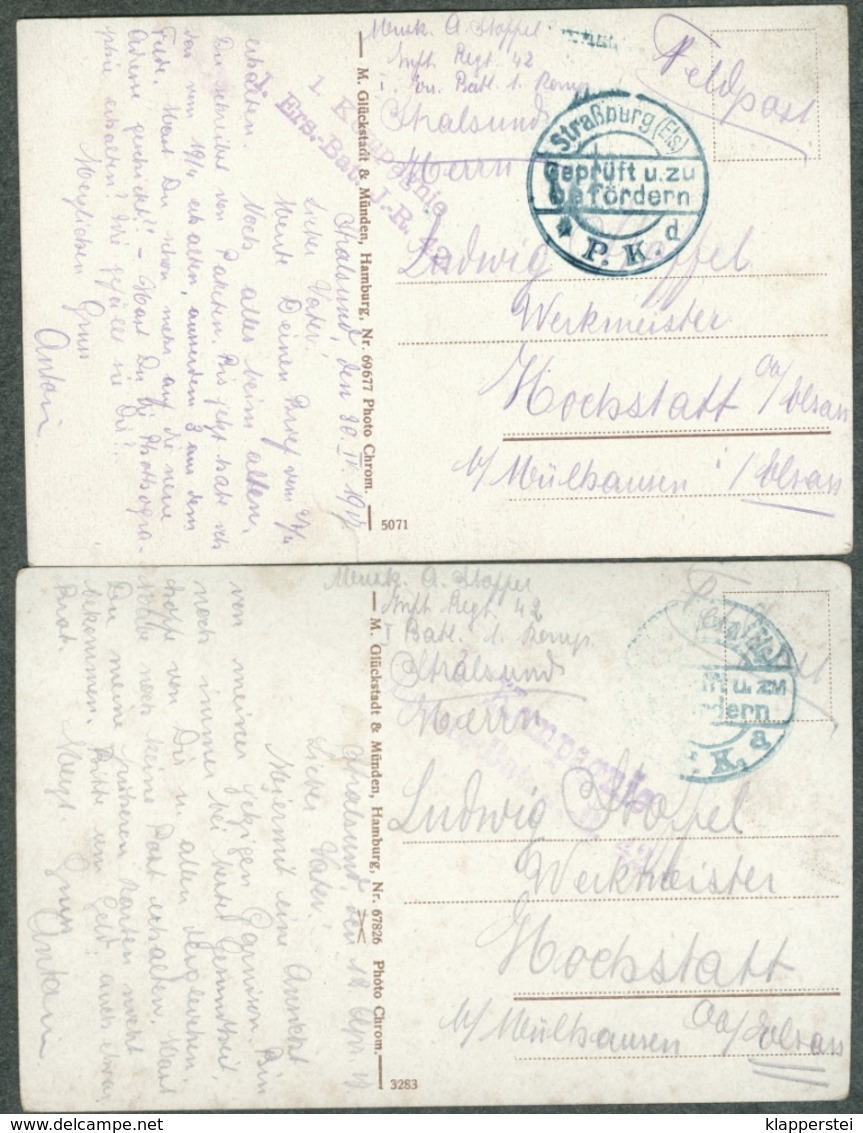 Musk. A. Stoffel
Inft. Regt. 42
Ers. Batl. 1. Komp.
Stralsund
Feldpost
Straßburg (Els)
Geprüft u. zu
befördern
* P. K. d
1. Kompagnie
Ers.-Bat. I.-R. 42
Herrn
Ludwig Stoffel
Werkmeister
Hochstatt O/Elsass
b/ Mülhausen i/Elsass
M. Glückstadt & Münden, Hamburg, Nr. 69677 Photo Chrom.
5071
Stralsund, den 30. IV. 1917
Lieber Vater!
Werte Deinen Brief vom
erhalten. Noch alles beim alten,
Du schreibst von Paketen. Bis jetzt habe ich
das vom 19/4 erhalten, ausserdem 3 aus dem
Felde. Hast Du schon mehr auf die neue
Adresse geschickt? – Hast Du die Photogra-
phie erhalten? Wie gefällt sie Dir?
Herzlichen Gruss
Anton
Musk. A. Stoffel
Inft. Regt. 42
I Batl. 1. Komp.
Stralsund
Feldpost
u. zu
dern
K. a
Kompagnie
Bat.
Herrn
Ludwig Stoffel
Werkmeister
Hochstatt
b/ Mülhausen O/Elsass
M. Glückstadt & Münden, Hamburg, Nr. 67826 Photo Chrom.
3283
Stralsund, den 18. Apr. 17
Lieber Vater!
Hiermit eine Ansicht
von meiner jetzigen Garnison. Bin
noch immer bei bester Gesundheit,
hoffe von Dir u. allen dergleichen.
Habe noch keine Post erhalten. Hast
Du meine früheren Karten nicht
bekommen. Bitte um Geld! auch etwas
Brot. Herzl. Gruss
Anton
klapperstei